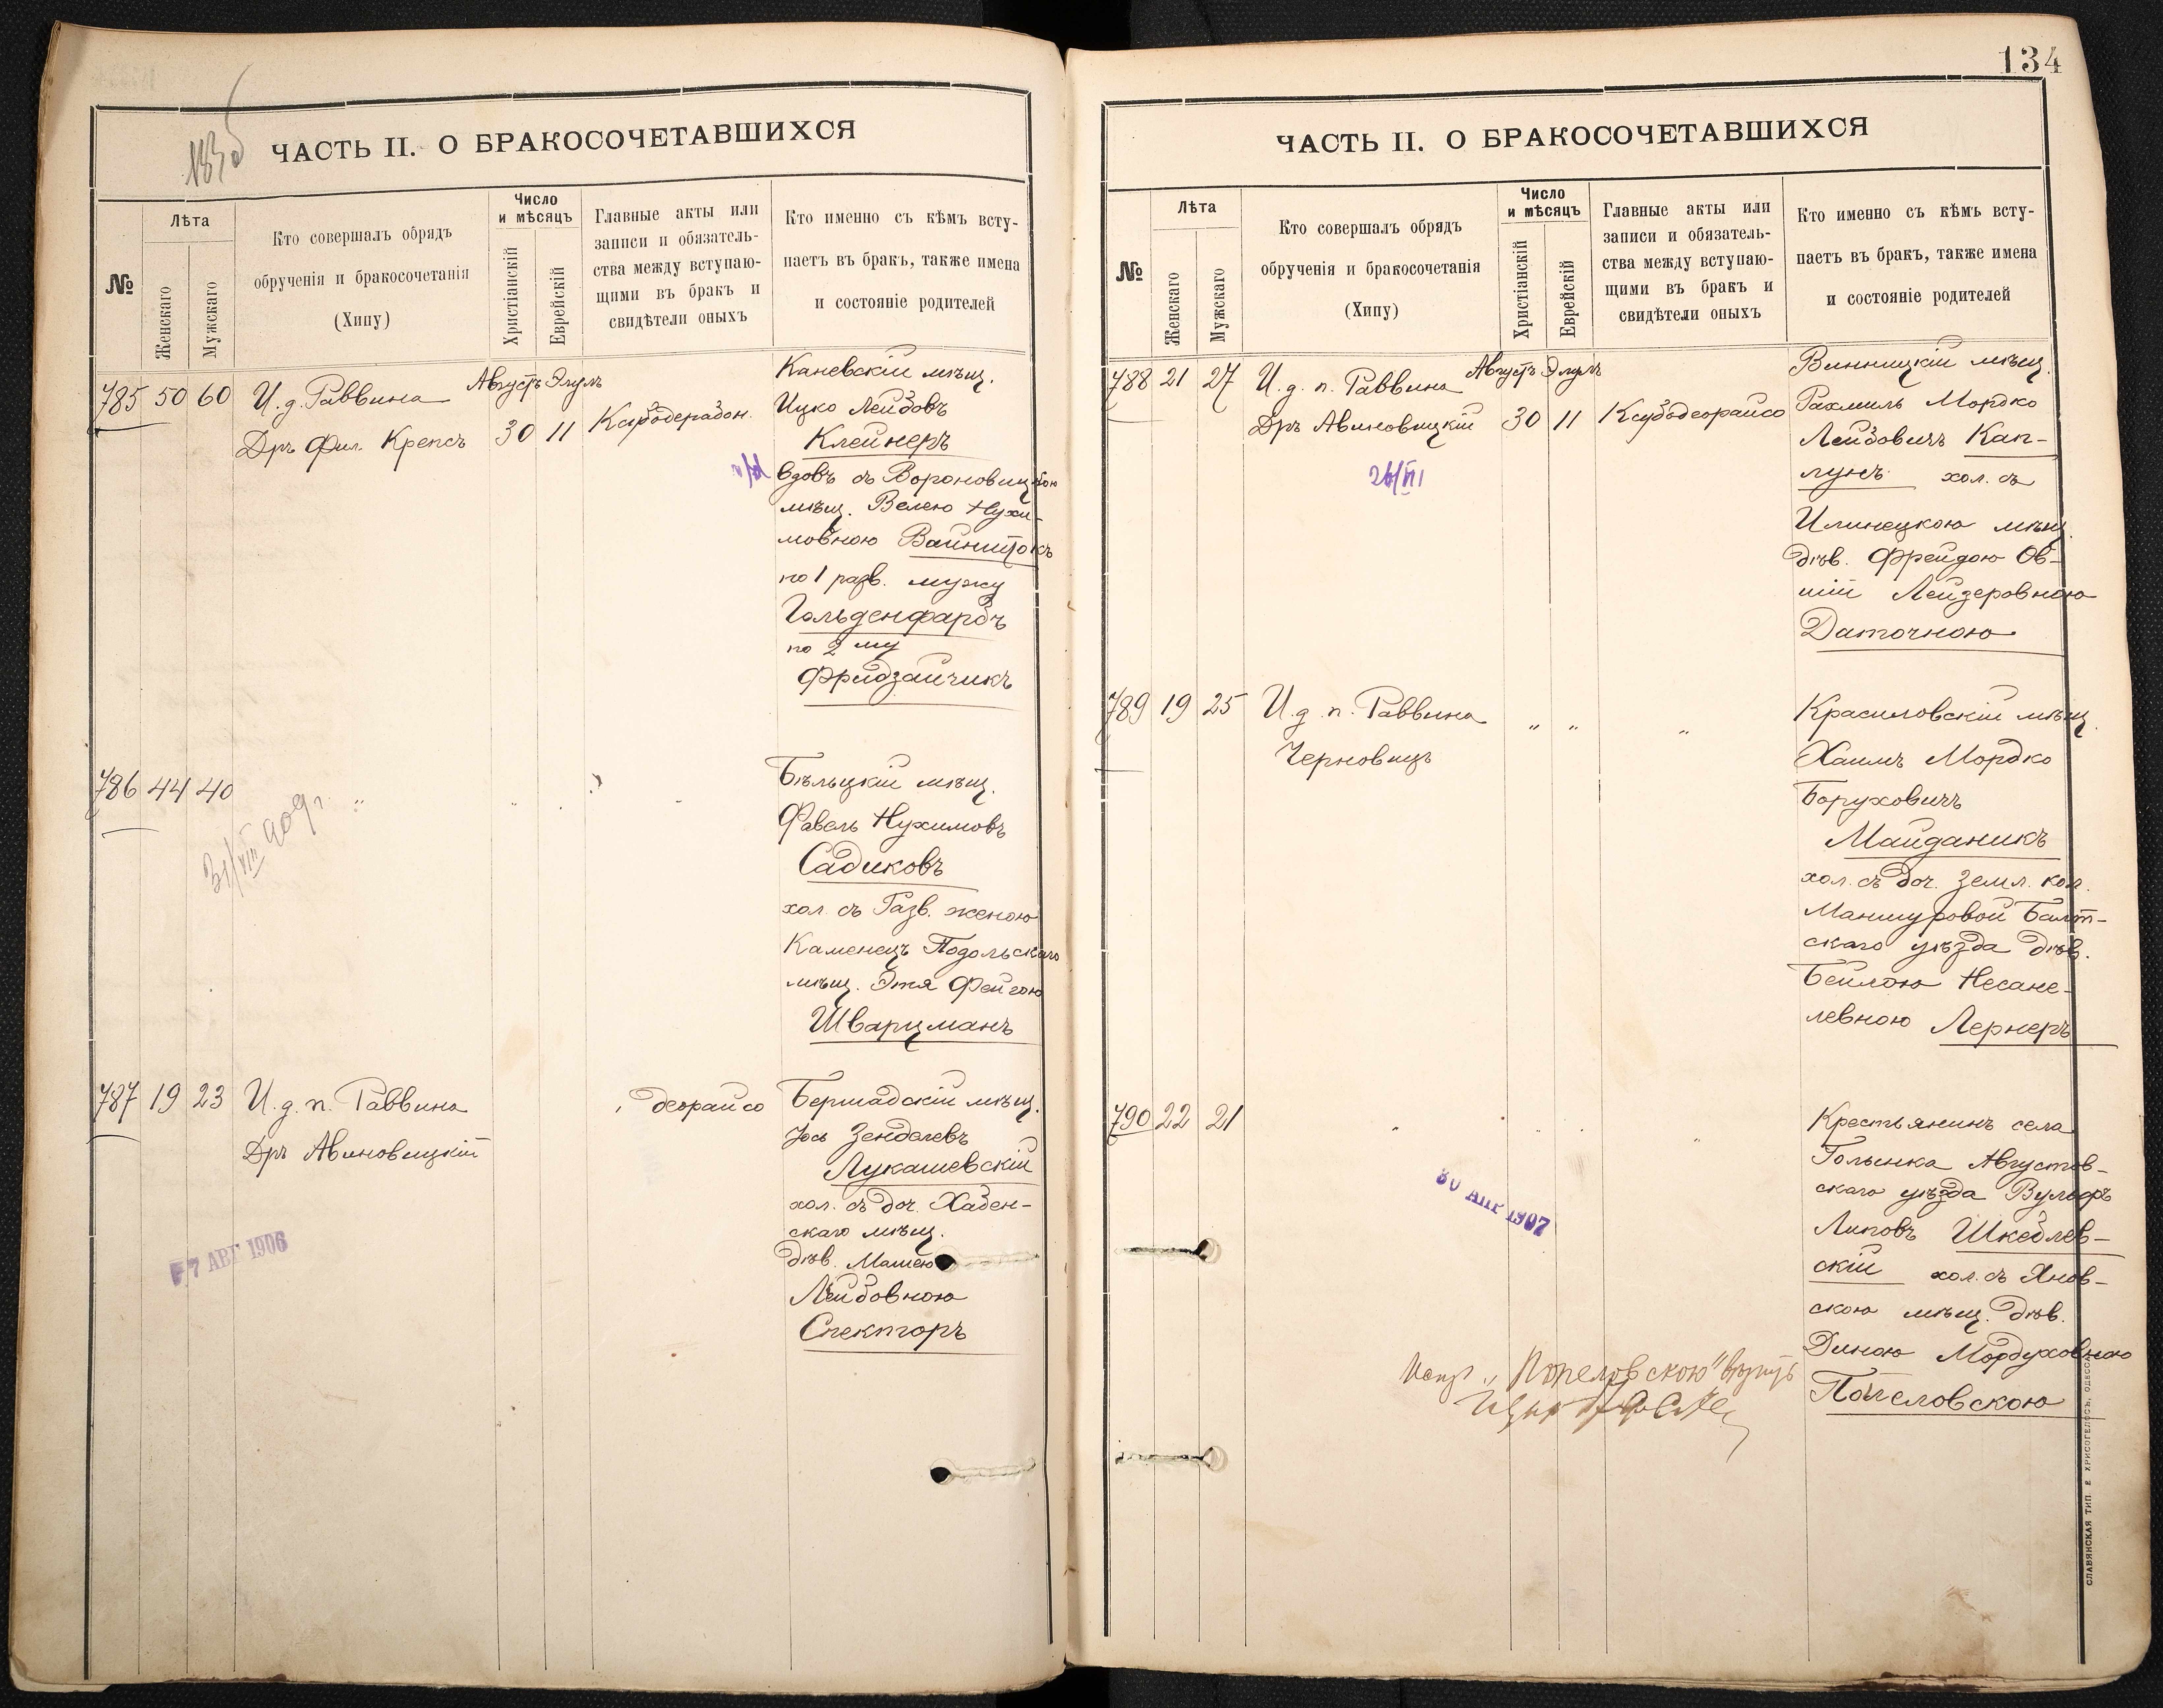 ЧАСТЬ II. О БРАКОСОЧЕТАВШИХСЯ
№
Лѣта
Женскаго
Мужскаго
Кто совершалъ обрядъ
обрученія и бракосочетанія
(Хипу)
Число
и мѣсяцъ
Христіанскій
Еврейскій
Главные акты или
записи и обязатель-
ства между вступаю-
щими въ бракъ и
свидѣтели оныхъ
Кто именно съ кѣмъ всту-
паетъ въ бракъ, также имена
и состояніе родителей
785 50 60
И. д. Раввина
Дръ Фил. Крепсъ
Августъ Элулъ
30 11
Каневскій мѣщ.
Ицко Лейбовъ
Клейнеръ
вдовъ съ Вороновицкою
мѣщ. Велею Нухи-
мовною Вайнштокъ
по 1 разв. мужу
Гольденфарбъ
по 2 му
Фридзайчикъ
786 44 40
31/VIII 909 г.
Бѣльцкій мѣщ.
Фавель Нухимовъ
Садиковъ
хол. съ Разв. женою
Каменецъ Подольскаго
мѣщ. Этя Фейгою
Шварцманъ
787 19 23
И. д. п. Раввина
Дръ Авиновицкій
деорайсо
7 АВГ 1906
Бершадскій мѣщ.
Іось Зенделевъ
Лукашевскій
хол. съ доч. Хабен-
скаго мѣщ.
дѣв. Машею
Лейбовною
Спекторъ
134
ЧАСТЬ II. О БРАКОСОЧЕТАВШИХСЯ
№
Лѣта
Женскаго
Мужскаго
Кто совершалъ обрядъ
обрученія и бракосочетанія
(Хипу)
Число
и мѣсяцъ
Христіанскій
Еврейскій
Главные акты или
записи и обязатель-
ства между вступаю-
щими въ бракъ и
свидѣтели оныхъ
Кто именно съ кѣмъ всту-
паетъ въ бракъ, также имена
и состояніе родителей
788 21 27
И. д. п. Раввина
Дръ Авиновицкій
Августъ Элулъ
30 11
Ксубодеорайсо
Винницкій мѣщ.
Рахмиль Мордко
Лейбовичъ Кап-
лунъ хол. съ
Илинецкою мѣщ.
дѣв. Фрейдою Ов-
шій Лейзеровною
Даточною
789 19 25
И. д. п. Раввина
Черновицъ
" " "
Красиловскій мѣщ.
Хаимъ Мордко
Боруховичъ
Майданикъ
хол. съ доч. Земл. кол.
Маншуровой Балт-
скаго уѣзда дѣв.
Бейлою Несане-
левною Лернеръ
790 22 21
30 АПР 1907
Крестьянинъ села
Голынка Августов-
скаго уѣзда Вульфъ
Липовъ Шкевлев-
скій хол. съ Янов-
скою мѣщ. дѣв.
Диною Мордуховною
Попеловскою
"Попеловскою"
СЛАВЯНСКАЯ ТИП. Е. ХРИСОГЕЛОСЪ, ОДЕССА